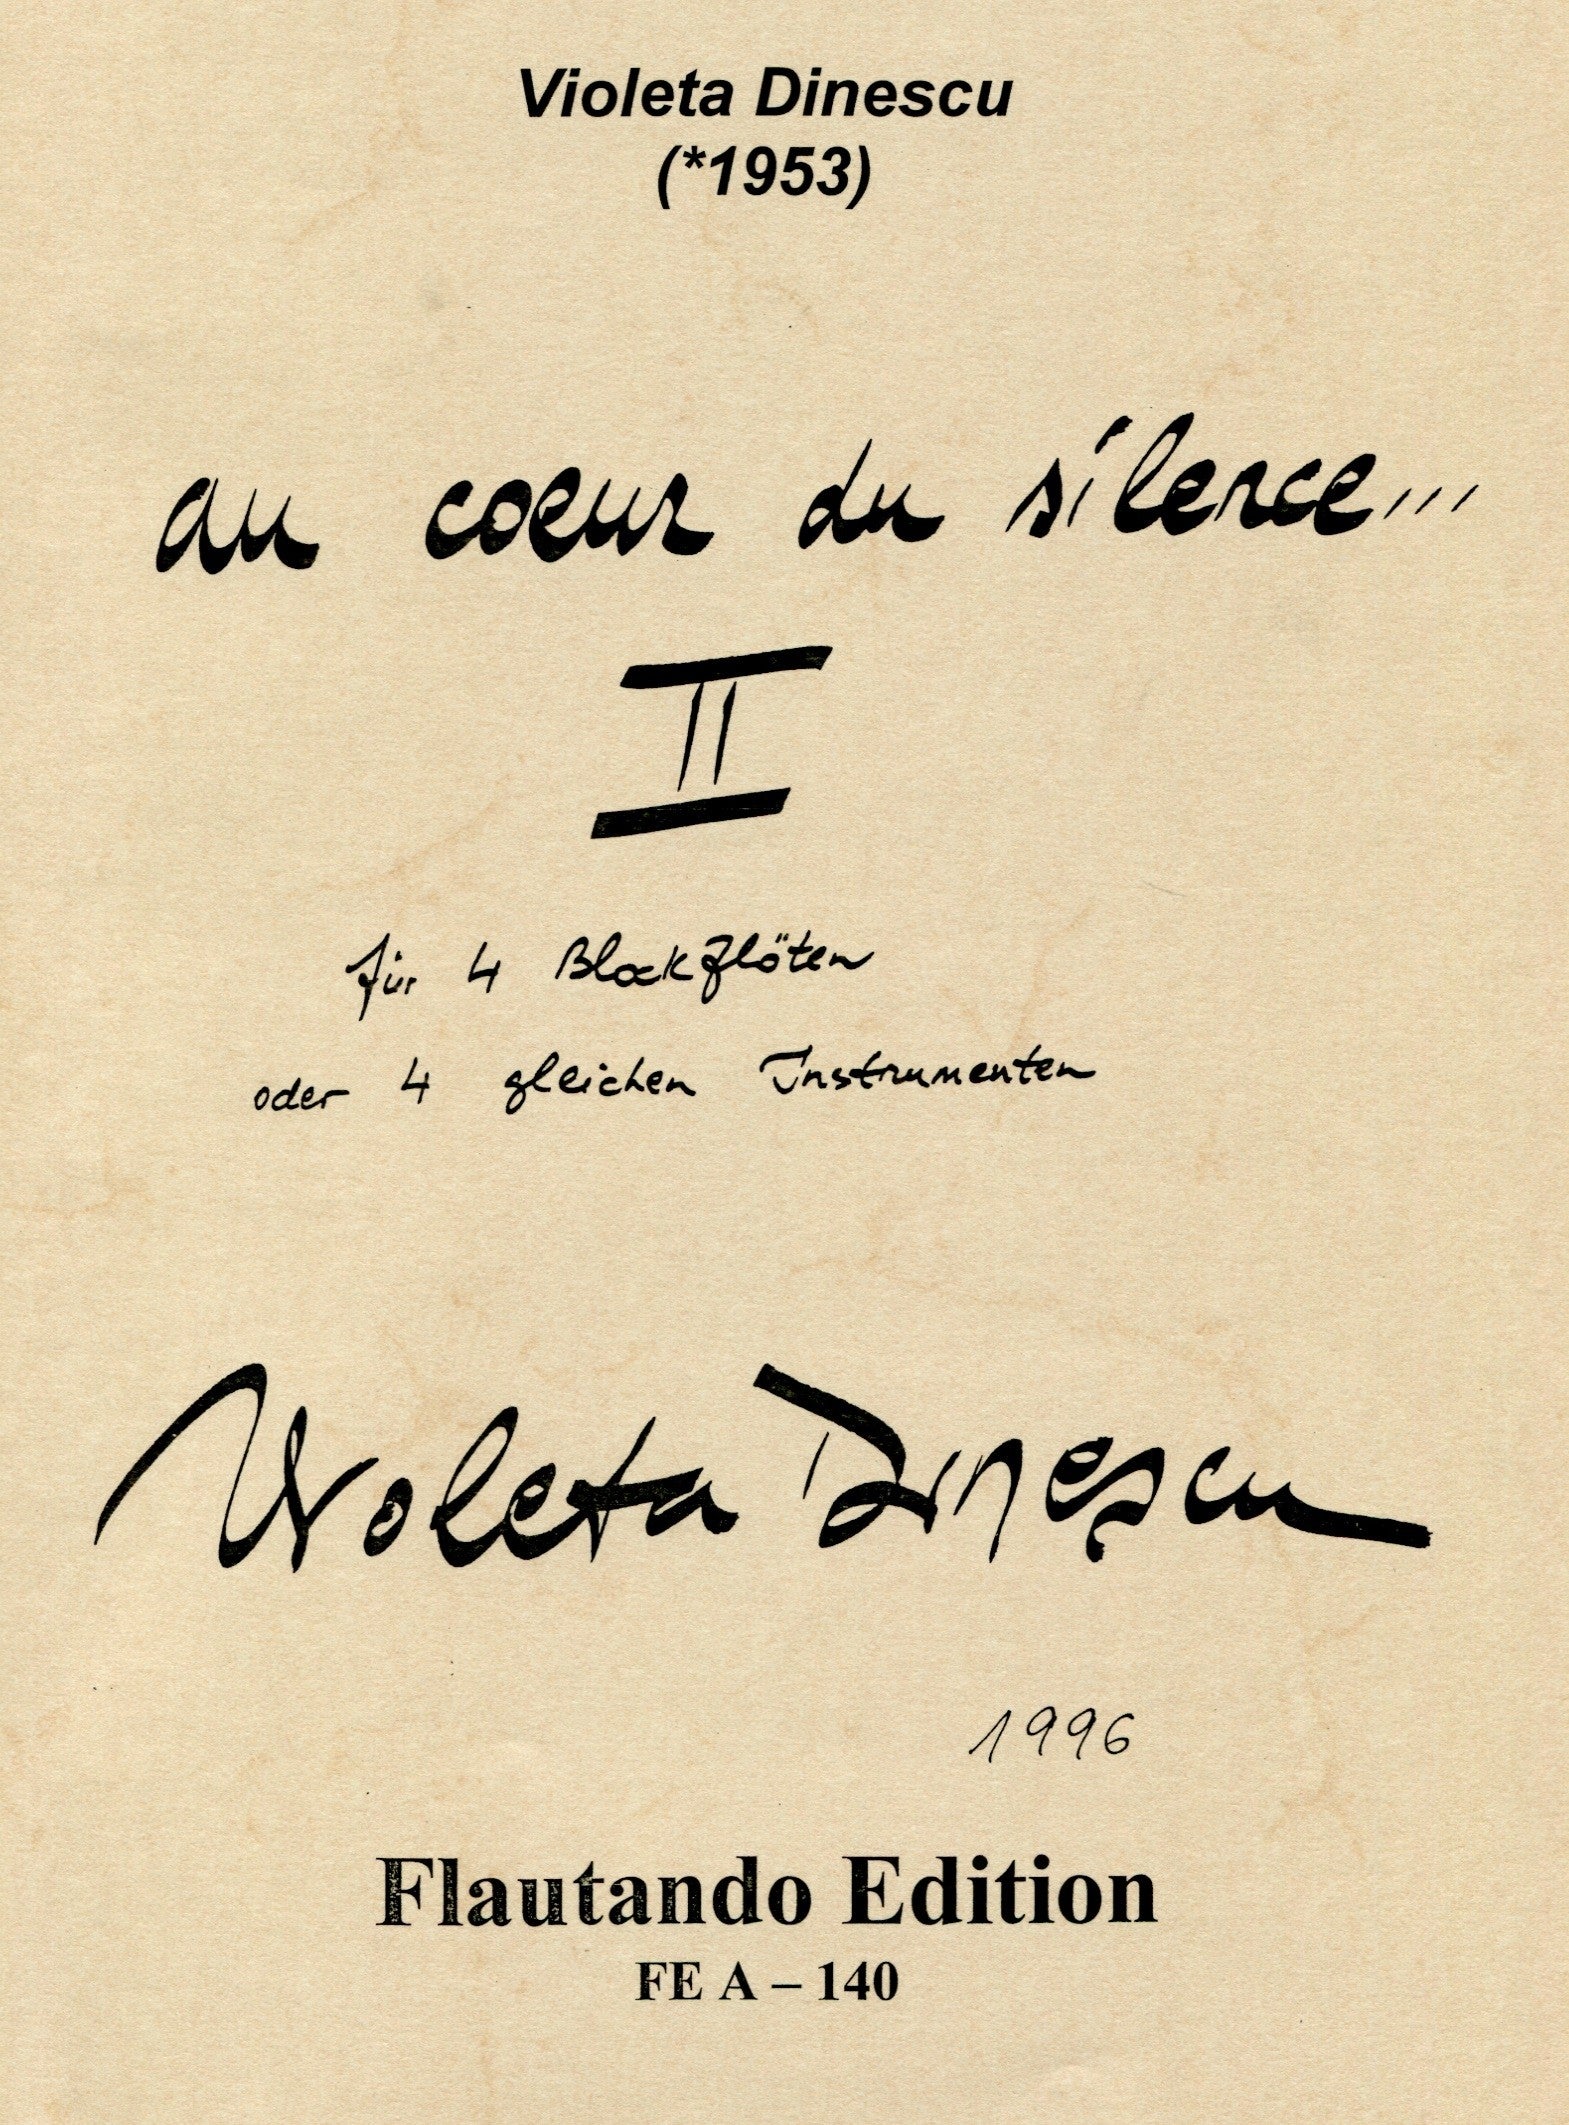 Violeta Dinescu
(*1953)
au coeur du silence...
II
für 4 Blockflöten
oder 4 gleichen Instrumenten
Violeta Dinescu
1996
Flautando Edition
FE A – 140